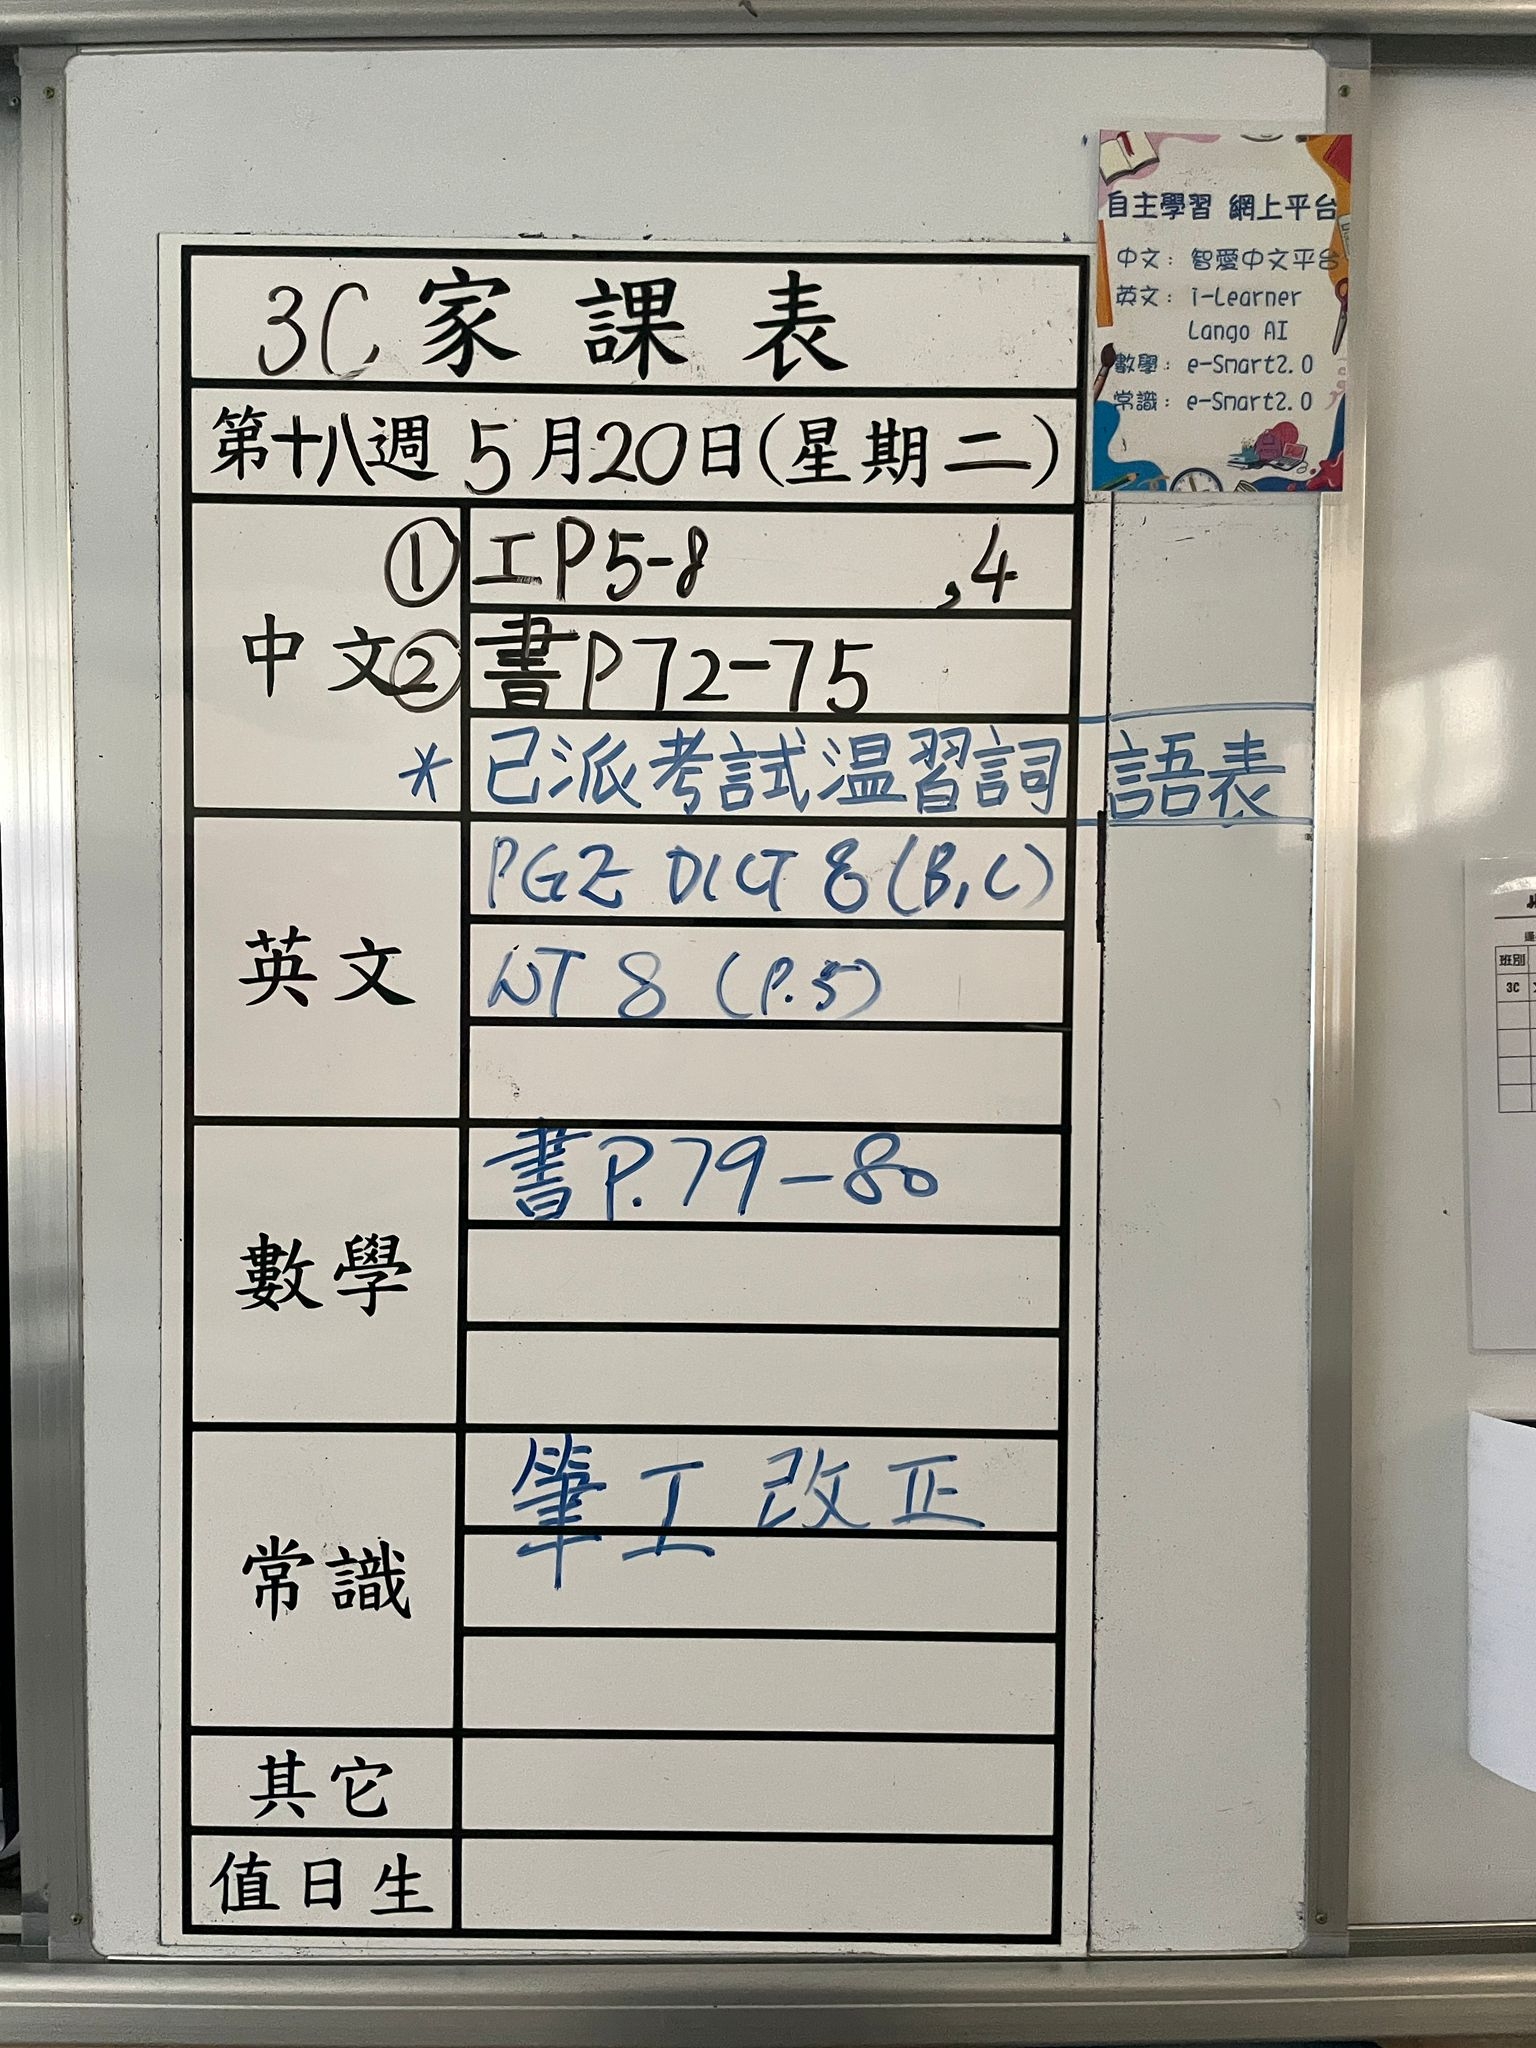 3C 家課表
第十八週 5月20日(星期二)
中文
① 工P5-8 ,4
② 書P72-75
* 已派考試温習詞語表
英文
PGE DICT 8 (B,C)
NT 8 (P.5)
數學
書P.79-80
常識
筆工改正
其它
值日生
自主學習 網上平台
中文: 智愛中文平台
英文: i-Learner
Lango AI
數學: e-Smart2.0
常識: e-Smart2.0
班別
3C